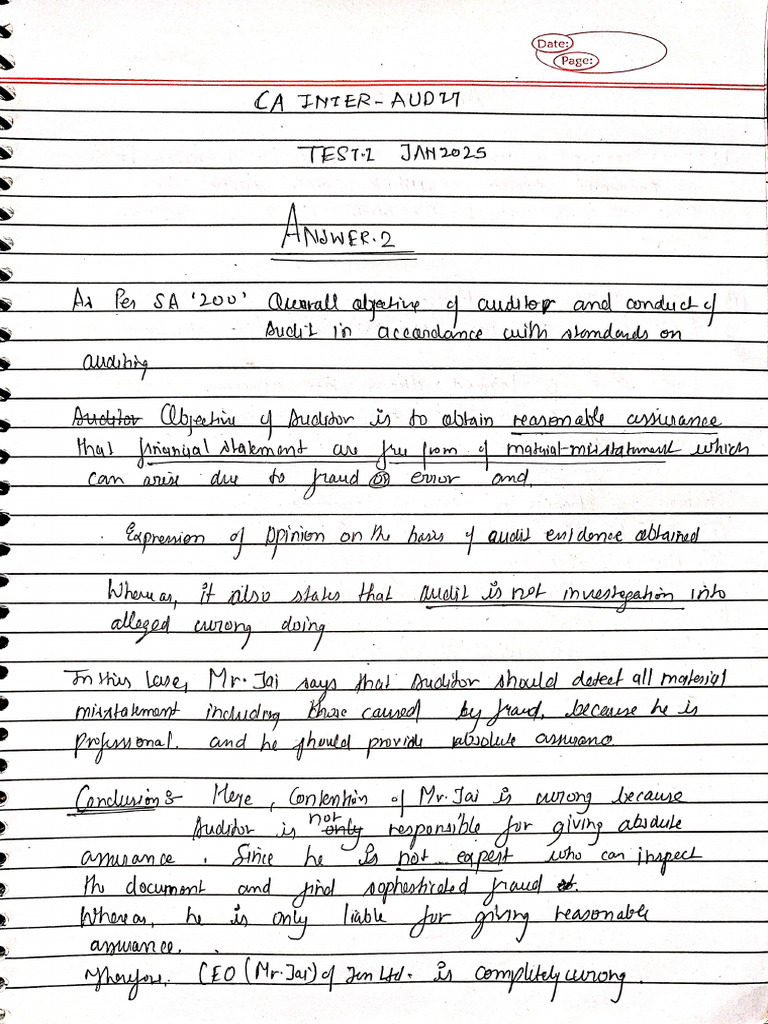 Date:
Page:
CA INTER - AUDIT
TEST-1 JAN 2025
ANSWER.2
As Per SA '200' Overall objective of auditor and conduct of
Audit in accordance with standards on
auditing
Auditor Objective of Auditor is to obtain reasonable assurance
that financial statement are free from of material-misstatement which
can arise due to fraud or error and
. Expression of Opinion on the basis of audit evidence obtained
Whereas, it also states that audit is not investigation into
alleged wrong doing
In this case, Mr. Jai says that Auditor should detect all material
misstatement including those caused by fraud, because he is
professional. and he should provide absolute assurance
Conclusion:- Here, Contention of Mr. Jai is wrong because
Auditor is only not responsible for giving absolute
assurance. Since he is not expert who can inspect
the document and find sophesticated fraud
Whereas, he is only liable for giving reasonable
assurance.
Therefore. CEO (Mr. Jai) of Jen Ltd. is completely wrong.